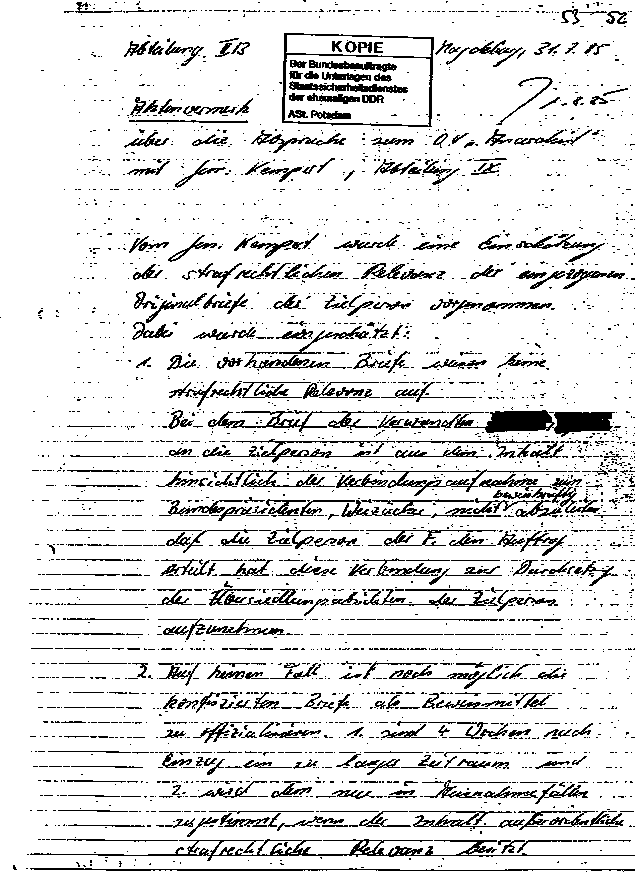 53 52
Abteilung II/3
KOPIE
Der Bundesbeauftragte
für die Unterlagen des
Staatssicherheitsdienstes
der ehemaligen DDR
ASt. Potsdam
Magdeburg, 31.7.85
1.8.85
Aktenvermerk
über die Absprache zum OV
mit Gen. Kempert, Abteilung IX
Vom Gen. Kempert wurde eine Einschätzung
der strafrechtlichen Relevanz der eingezogenen
Originalbriefe der Zielperson vorgenommen.
Dabei wurde eingeschätzt:
1. Die vorhandenen Briefe weisen keine
strafrechtliche Relevanz auf.
Bei dem Brief der Verwandten
an die Zielperson ist aus dem Inhalt
hinsichtlich der Verbindungsaufnahme zum
beweiskräftig
Bundespräsidenten, Weizäcker, nicht abzuleiten
daß die Zielperson der F. den Auftrag
erteilt hat diese Verbindung zur Durchsetzg
der Übersiedlungsabsichten der Zielperson
aufzunehmen.
2. Auf keinen Fall ist noch möglich die
konfiszierten Briefe als Beweismittel
zu offizialisieren. 1. sind 4 Wochen nach
Einzug ein zu langer Zeitraum und
2. wird dem nur in Ausnahmefällen
zugestimmt, wenn der Inhalt außerordentliche
strafrechtliche Relevanz besitzt.